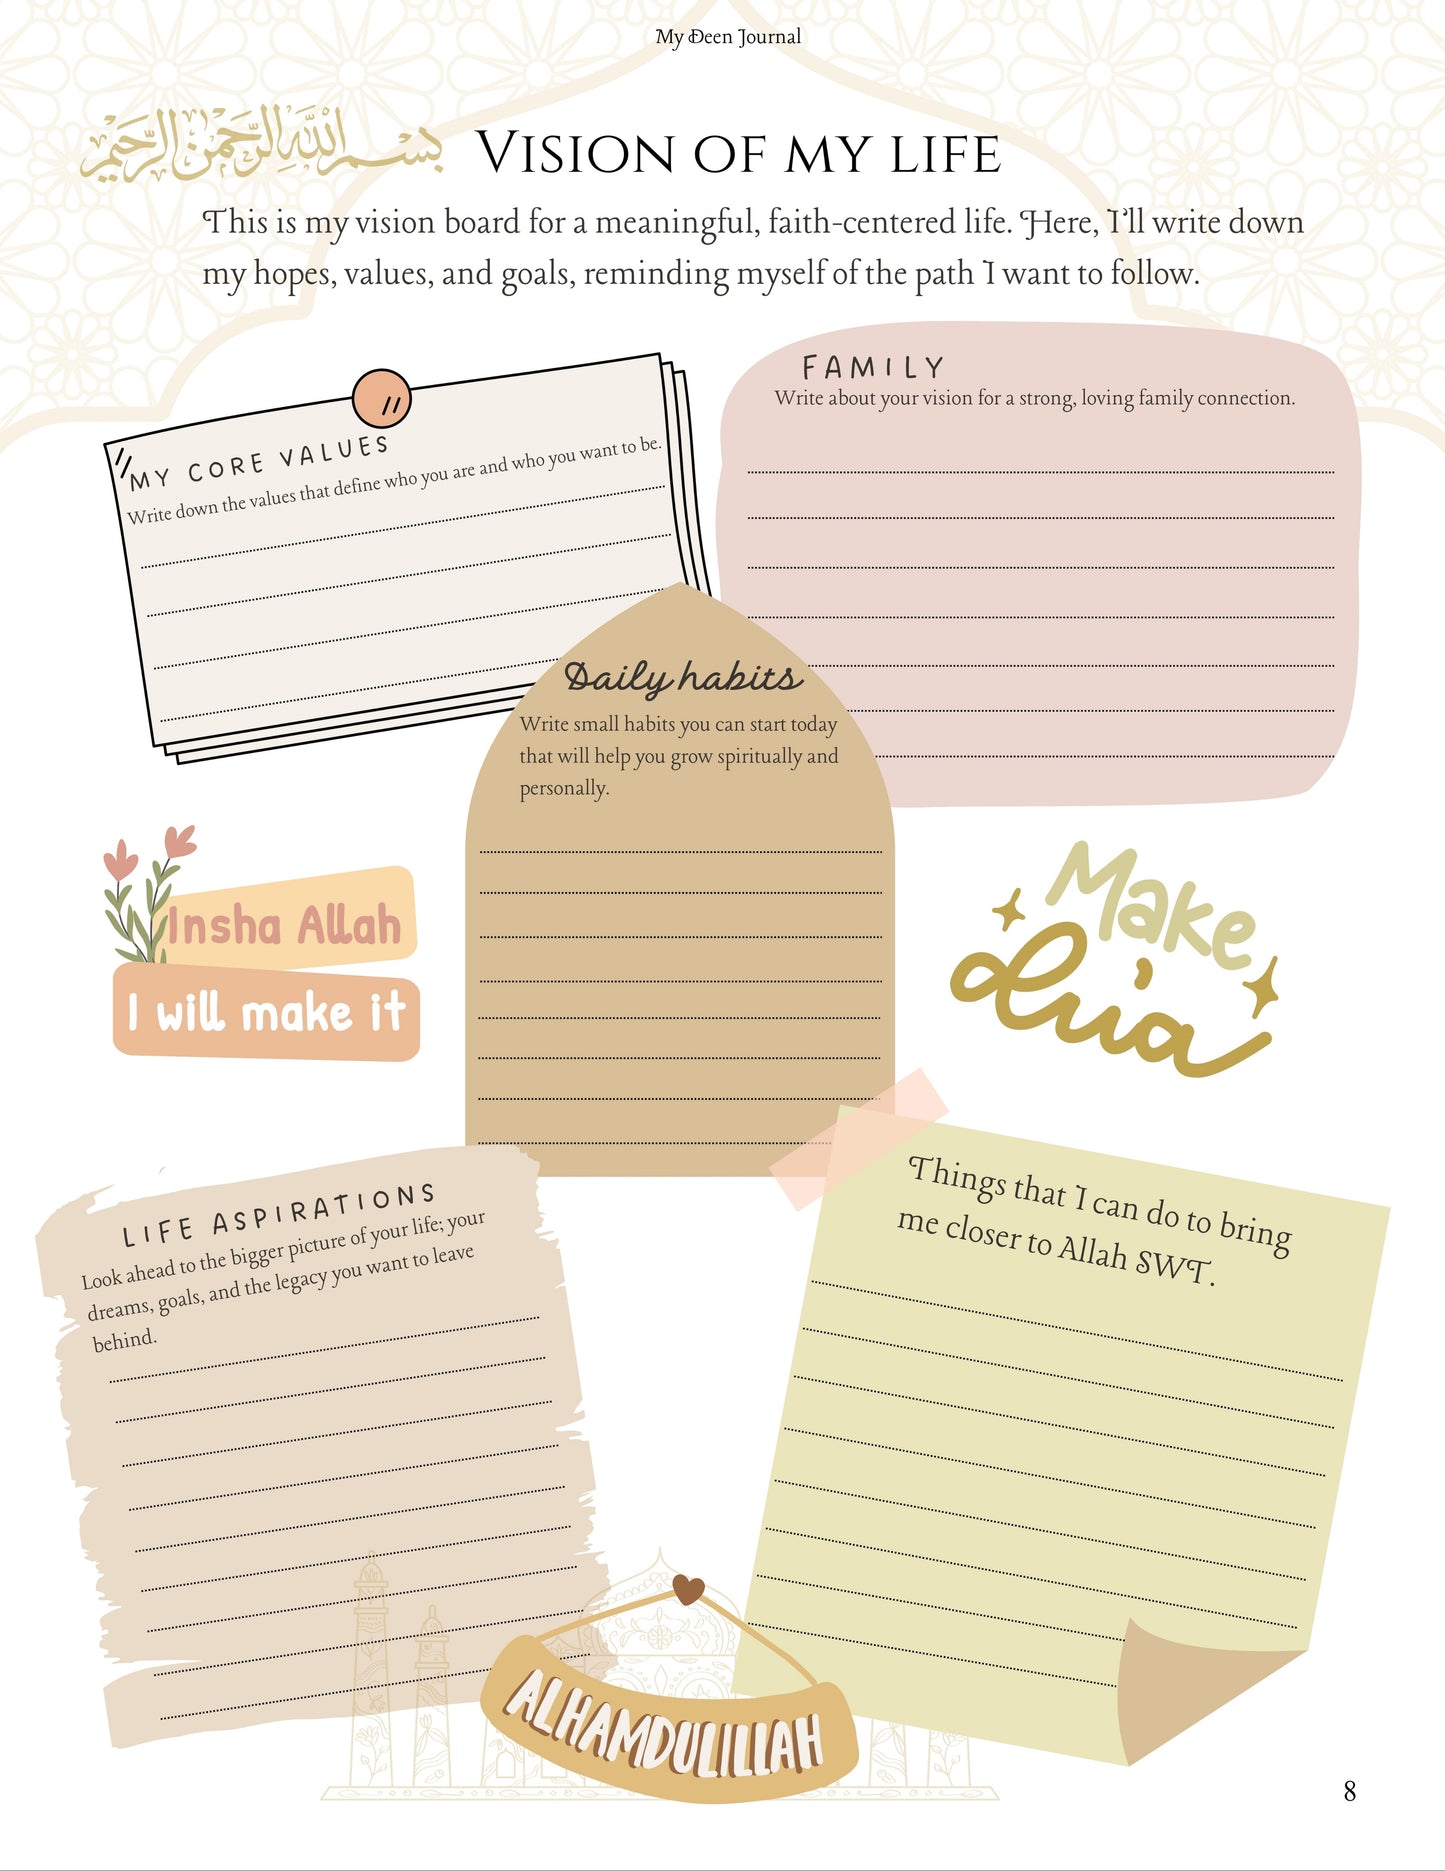 My Deen Journal
بسم الله الرحمن الرحيم
VISION OF MY LIFE
This is my vision board for a meaningful, faith-centered life. Here, I'll write down
my hopes, values, and goals, reminding myself of the path I want to follow.
MY CORE VALUES
Write down the values that define who you are and who you want to be.
FAMILY
Write about your vision for a strong, loving family connection.
Daily habits
Write small habits you can start today
that will help you grow spiritually and
personally.
Insha Allah
I will make it
Make
du'a
LIFE ASPIRATIONS
Look ahead to the bigger picture of your life; your
dreams, goals, and the legacy you want to leave
behind.
Things that I can do to bring
me closer to Allah SWT.
ALHAMDULILLAH
8